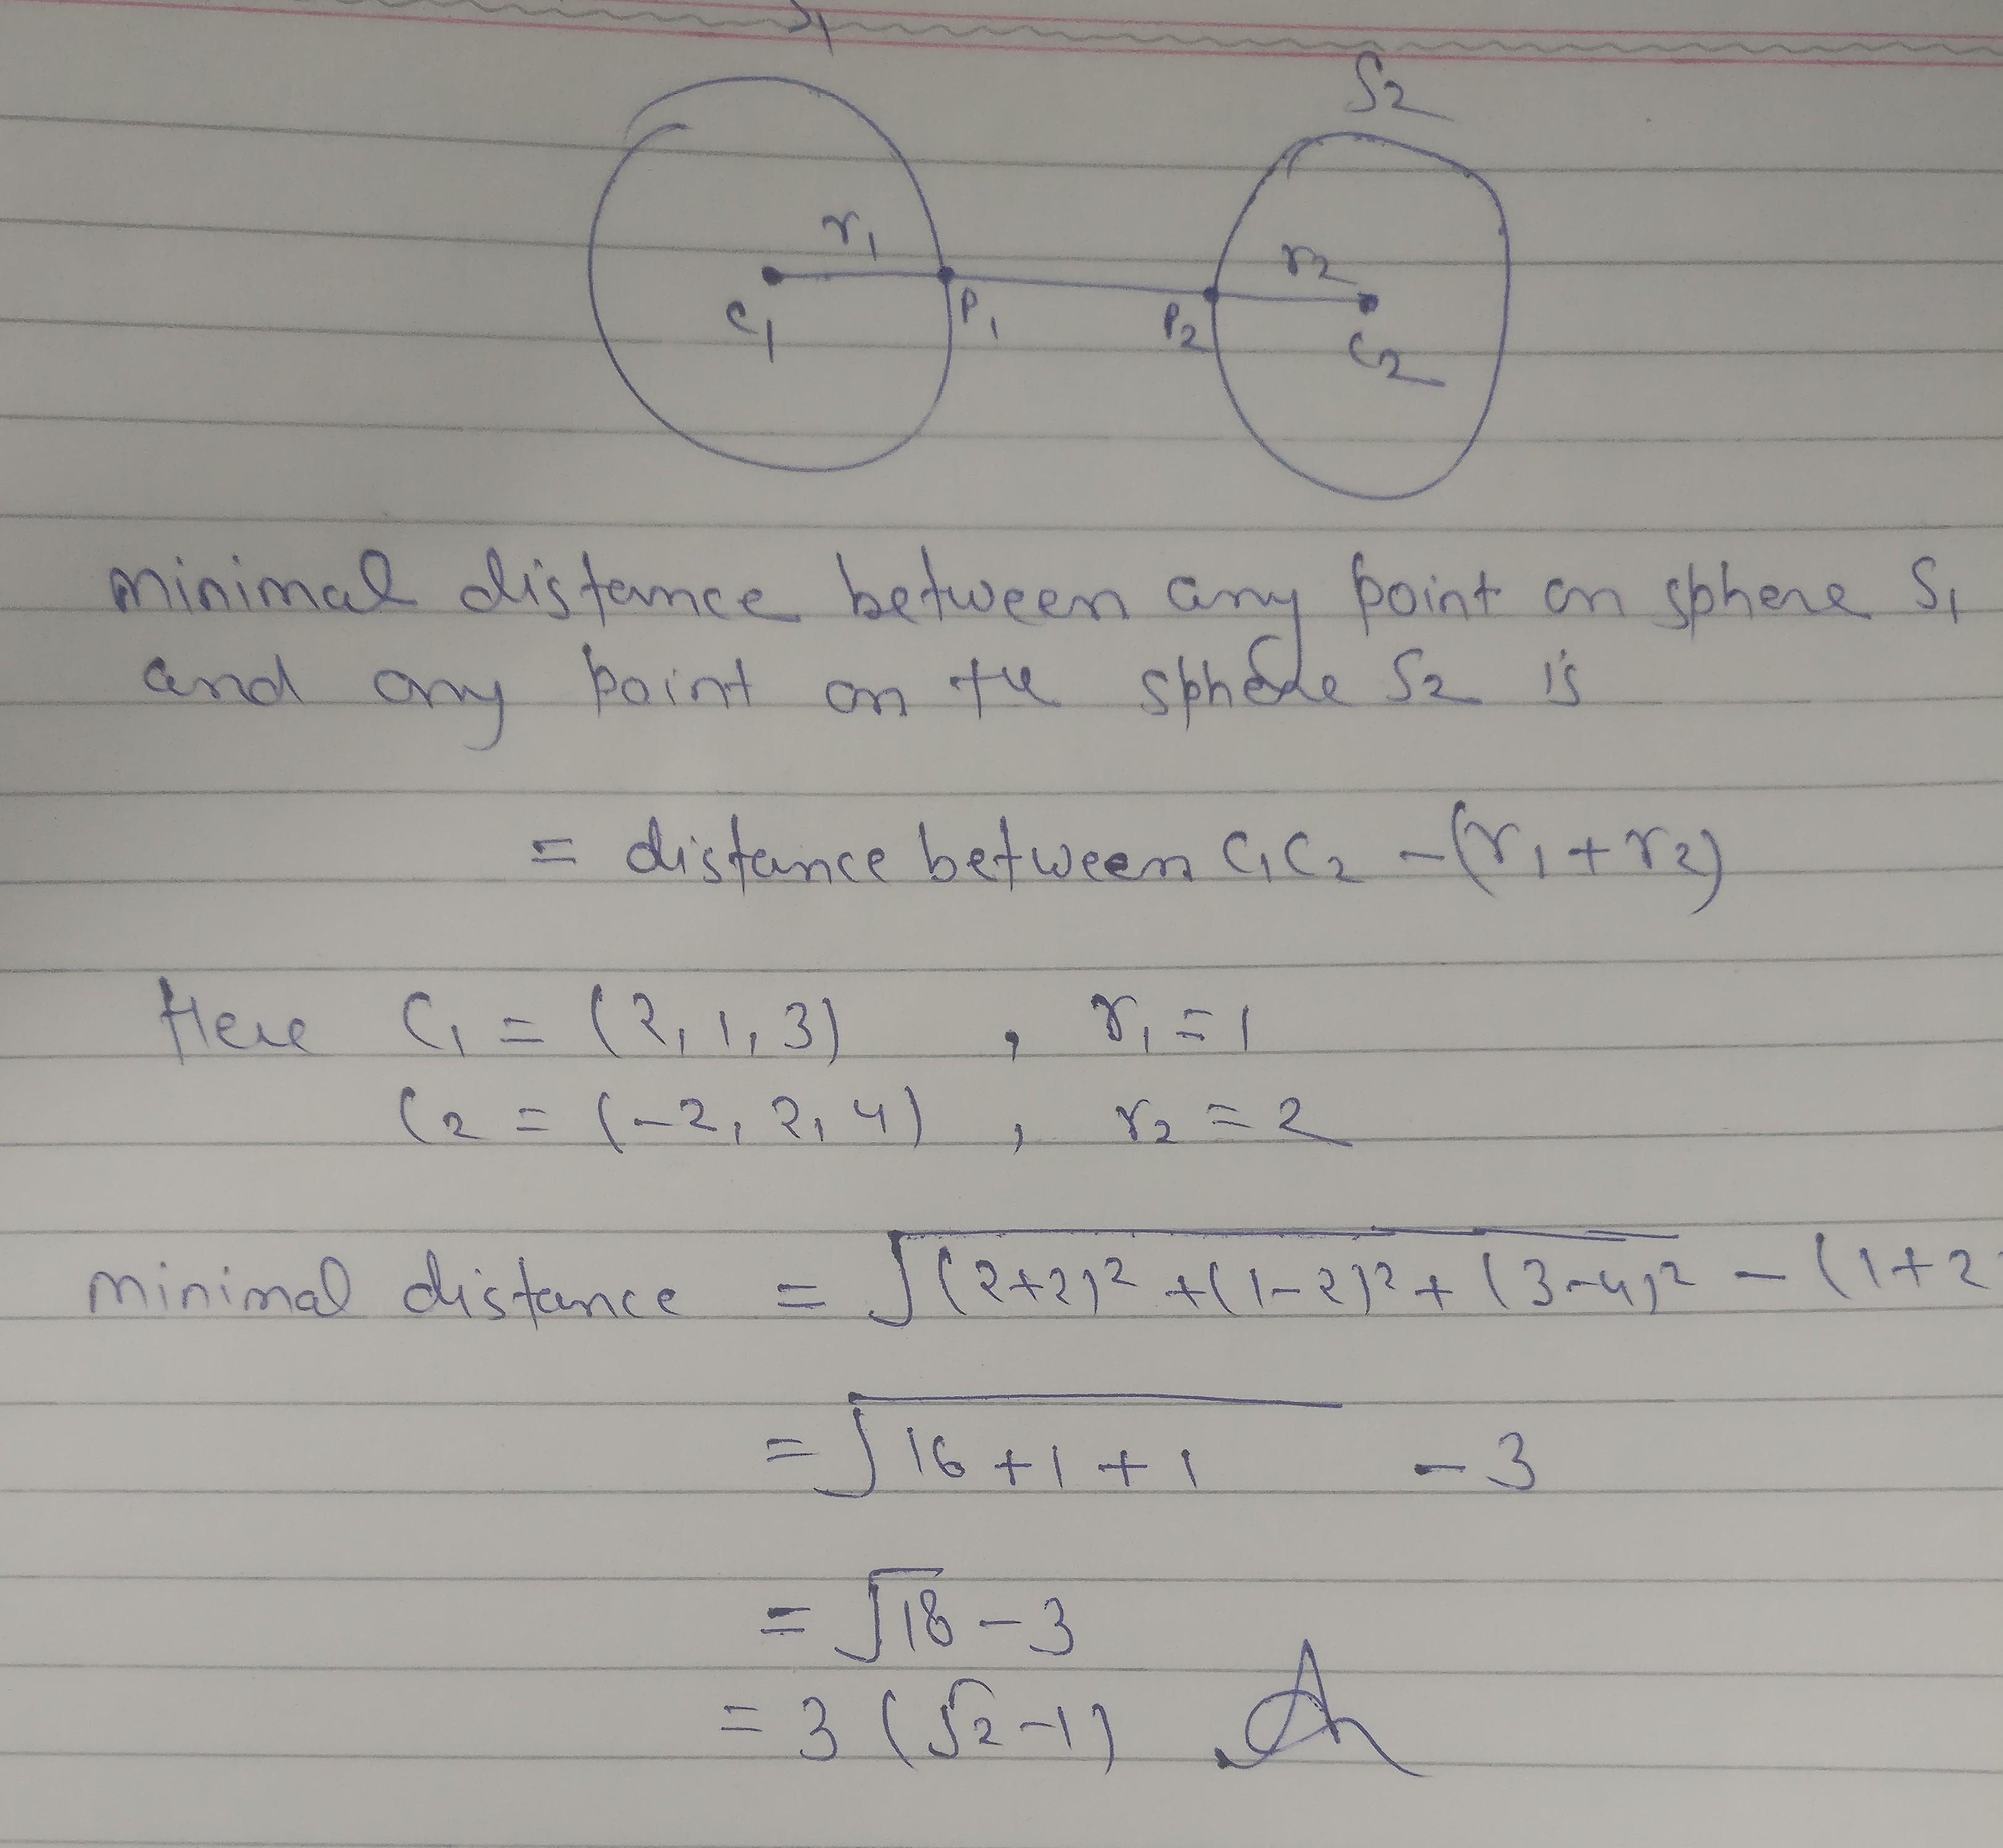 S2
r1
r2
C1
P1
P2
C2
minimal distance between any point on sphere S1
and any point on the sphere S2 is
= distance between C1C2 - (r1 + r2)
Here C1 = (2, 1, 3) , r1 = 1
C2 = (-2, 2, 4) , r2 = 2
minimal distance = √(2+2)² + (1-2)² + (3-4)² - (1+2
= √16 + 1 + 1 - 3
= √18 - 3
= 3 (√2 - 1)